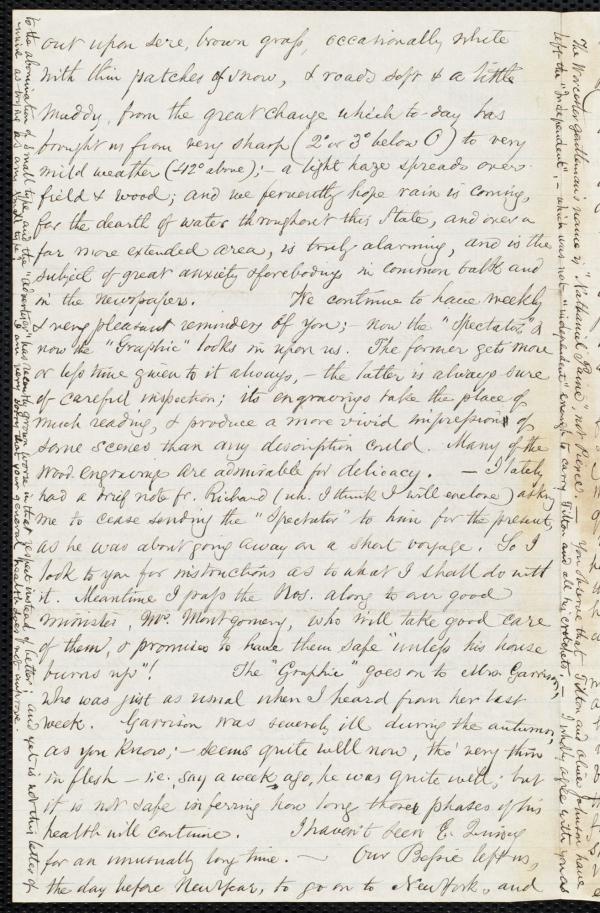 out upon sere, brown grass, occasionally white
with thin patches of snow, & roads soft & a little
muddy, from the great change which to-day has
brought us from very sharp (2° or 3° below 0) to very
mild weather (42° above); - a light haze spreads over
field & wood; and we fervently hope rain is coming,
for the dearth of water throughout this State, and over a
far more extended area, is truly alarming, and is the
subject of great anxiety & forebodings in common talk and
in the newspapers. We continue to have weekly
& very pleasant reminders of you; - now the "Spectator" &
now the "Graphic" looks in upon us. The former gets more
or less time given to it always, - the latter is always sure
of careful inspection; its engravings take the place of
much reading, & produce a more vivid impression of
some scenes than any description could. Many of the
wood engravings are admirable for delicacy. - I lately
had a brief note fr. Richard (wh. I think I will enclose) asking
me to cease sending the "Spectator" to him for the present,
as he was about going away on a short voyage. So I
look to you for instructions as to what I shall do with
it. Meantime I pass the Nos. along to our good
minister, Mr. Montgomery, who will take good care
of them, & promises to have them safe "unless his house
burns up"! The "Graphic" goes on to Mrs. Garrison,
who was just as usual when I heard from her last
week. Garrison was severely ill during the autumn,
as you know; - seems quite well now, tho' very thin
in flesh - i.e. say a week ago, he was quite well; but
it is not safe inferring how long those phases of his
health will continue. I haven't seen E. Quincy
for an unusually long time. - Our Bessie left us,
the day before New Year, to go on to New York, and
to the abomination of small type, and the "Advertiser" has recently grown worse in that respect instead of better, and yet is not this letter of
mine as trying as any small type? I am very sorry that your general health does not improve.
The Worcester gentleman's name is "Nathaniel Paine", not Pierce. - You observe that Tilton and Oliver Johnson have
left the "Independent", - which was not "independent" enough to carry Tilton and all his crotchets. - I wholly agree with yours